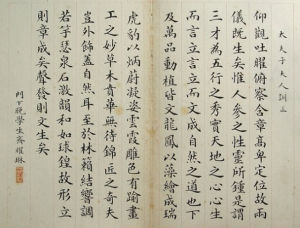 大夫子大人訓正
仰觀吐曜俯察含章高卑定位故兩
儀既生矣惟人參之性靈所鍾是謂
三才為五行之秀實天地之心心生
而言立言立而文成自然之道也下
及萬品動植皆文龍鳳以藻繪成瑞
虎豹以炳蔚凝姿雲霞雕色有踰畫
工之妙草木賁華無待錦匠之奇夫
豈外飾蓋自然耳至於林籟結響調
若竽瑟泉石激韻和如球鍠故形立
則章成矣聲發則文生矣
門下晚學生齊耀琳